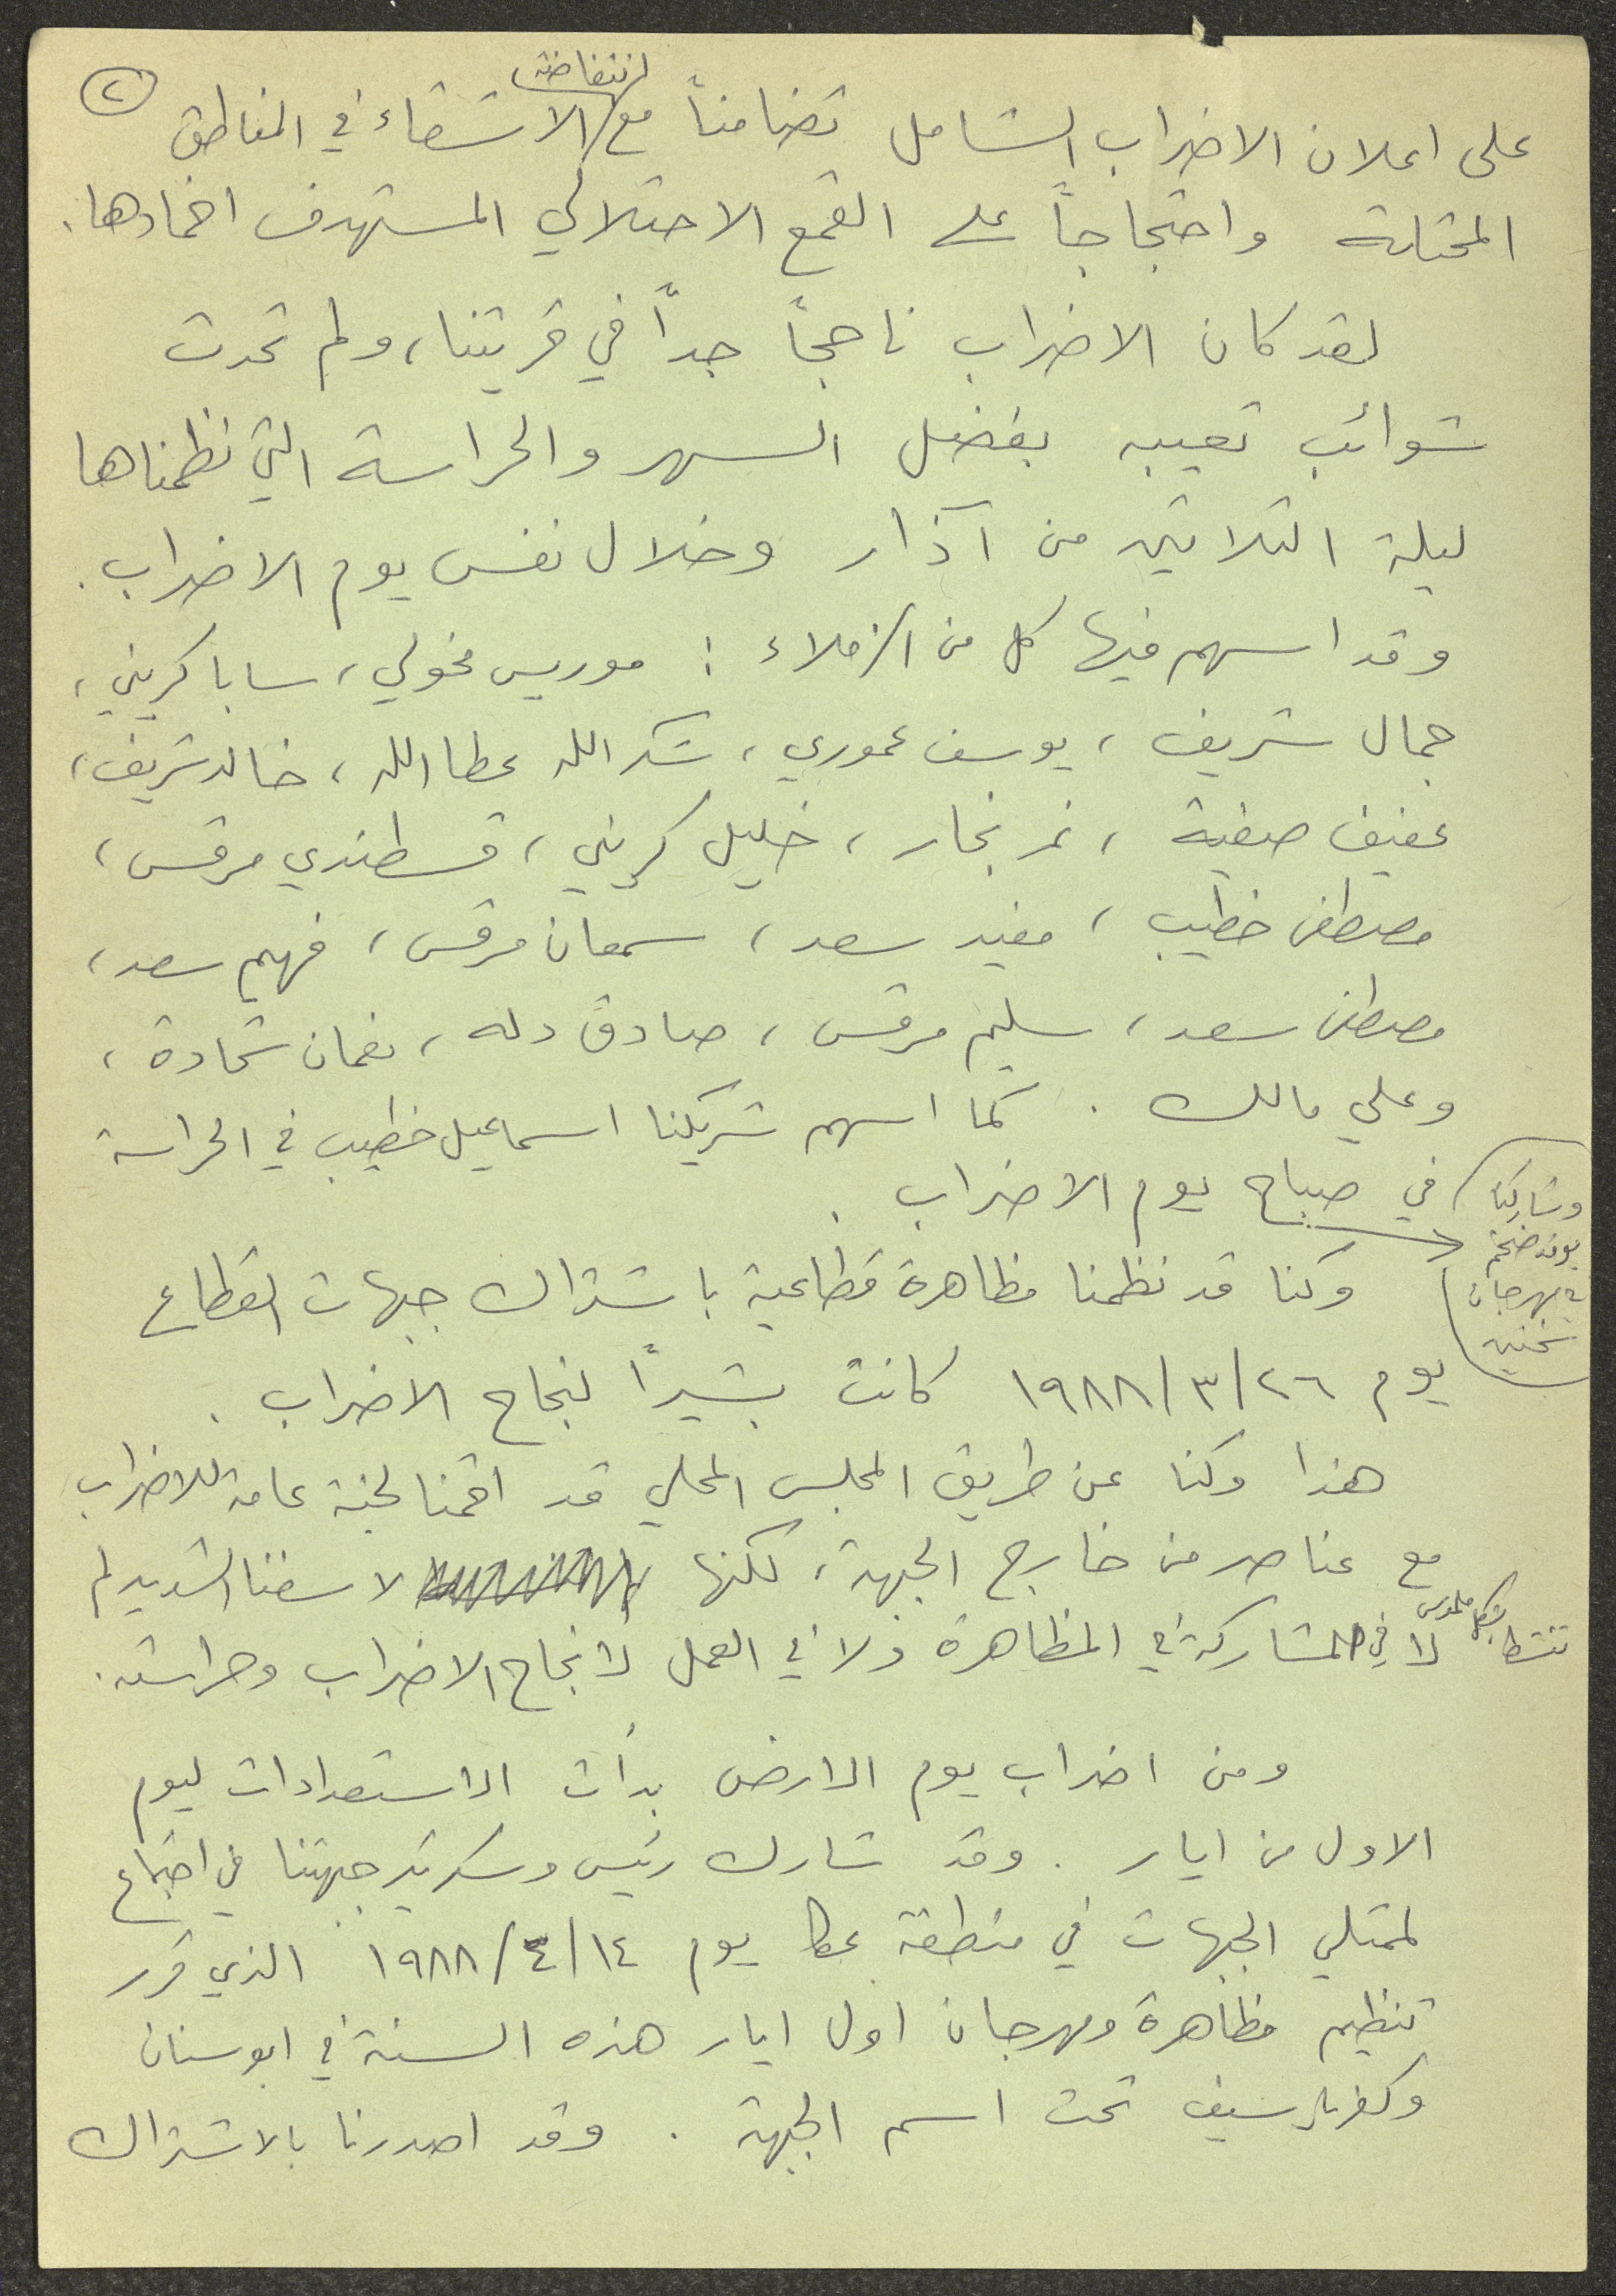 ٢
على اعلان الاضراب الشامل تضامناً مع انتفاضة الاشقاء في المناطق
المحتلة واحتجاجاً على القمع الاحتلالي المستهدف اخمادها.
لقد كان الاضراب ناجحاً جداً في قريتنا، ولم تحدث
شوائب تعيبه بفضل السهر والحراسة التي نظمناها
ليلة الثلاثين من آذار وخلال نفس يوم الاضراب.
وقد اسهم فيها كل من الزملاء : موريس مخولي، سابا كريني،
جمال شريف، يوسف عموري، شكرالله عطاالله، خالد شريف،
عفيف صفية، نمر نجار، خليل كريني، قسطندي مرقس،
مصطفى خطيب، مفيد سعد، سمعان مرقس، فهيم سعد،
مصطفى سعد، سليم مرقس، صادق دله، نعمان شحادة،
وعلي مالك. كما اسهم شريكنا اسماعيل خطيب في الحراسة
في صباح يوم الاضراب.
وشاركنا
بوفد ضخم
في مهرجان
سخنين
وكنا قد نظمنا مظاهرة قطاعية باشتراك جبهات القطاع
يوم ٢٦/٣/١٩٨٨ كانت بشيراً لنجاح الاضراب.
هذا وكنا عن طريق المجلس المحلي قد اقمنا لجنة عامة للاضراب
مع عناصر من خارج الجبهة، لكنها لاسفنا الشديد لم
تنشط بشكل ملموس لا في المشاركة في المظاهرة ولا في العمل لانجاح الاضراب وحراسته.
ومن اضراب يوم الارض بدأت الاستعدادات ليوم
الاول من ايار. وقد شارك رئيس وسكرتير جبهتنا في اجتماع
لممثلي الجبهات في منطقة عكا يوم ١٤/٤/١٩٨٨ الذي قرر
تنظيم مظاهرة ومهرجان اول ايار هذه السنة في ابوسنان
وكفرياسيف تحت اسم الجبهة. وقد اصدرنا بالاشتراك